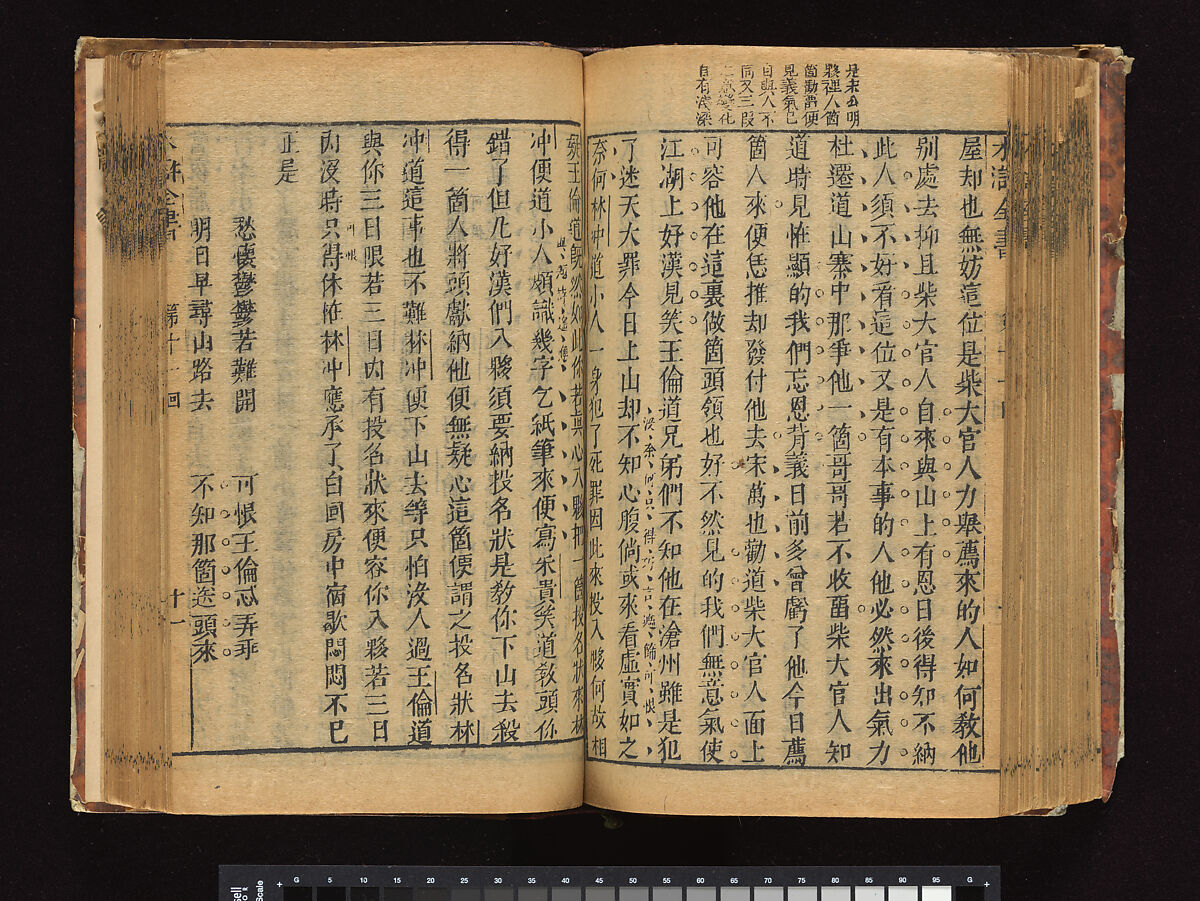 是朱武明
夥裡人箇
箇勸留便
見義氣已
自與人不
同又三段
自有淺深
水滸全書
屋却也無妨這位是柴大官人力舉薦來的人如何教他
別處去抑且柴大官人自來與山上有恩日後得知不納
此人須不好看這位又是有本事的人他必然來出氣力
杜遷道山寨中那爭他一箇哥哥若不收畱柴大官人知
道時見恠顯的我們忘恩背義日前多曾虧了他今日薦
箇人來便恁推却發付他去宋萬也勸道柴大官人面上
可容他在這裏做箇頭領也好不然見的我們無意氣使
江湖上好漢見笑王倫道兄弟們不知他在滄州雖是犯
了迷天大罪今日上山却不知心腹倘或來看虛實如之
奈何林冲道小人一身犯了死罪因此來投入夥何故相
疑王倫道旣然如此你若真心入夥把一箇投名狀來林
冲便道小人頗識幾字乞紙筆來便寫朱貴笑道教頭你
錯了但凡好漢們入夥須要納投名狀是教你下山去殺
得一箇人將頭獻納他便無疑心這箇便謂之投名狀林
冲道這事也不難林冲便下山去等只怕沒人過王倫道
與你三日限若三日內有投名狀來便容你入夥若三日
內沒時只得休恠林冲應承了自回房中宿歇悶悶不已
正是
愁懷鬱鬱若難開 可恨王倫忒弄乖
明日早尋山路去 不知那箇送頭來
水滸全書 第十一回 十一